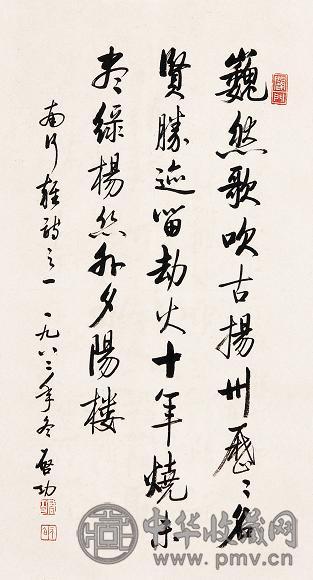 巍然歌吹古揚州歷〻名
賢勝迹留劫火十年燒未
尽綠楊絲外夕陽樓
南行雜詩之一 一九八二年冬 啓功
中华收藏网
www.pmv.cn